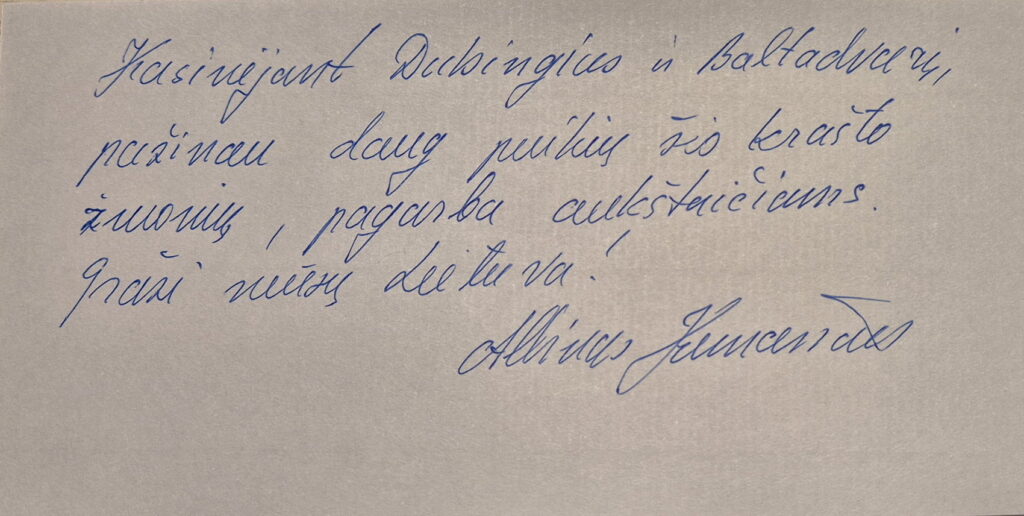 Kasinėjant Dubingius ir Baltadvarį,
pažinau daug puikių šio krašto
žmonių, pagarba aukštaičiams.
Graži mūsų Lietuva!
Albinas Kuncevičius